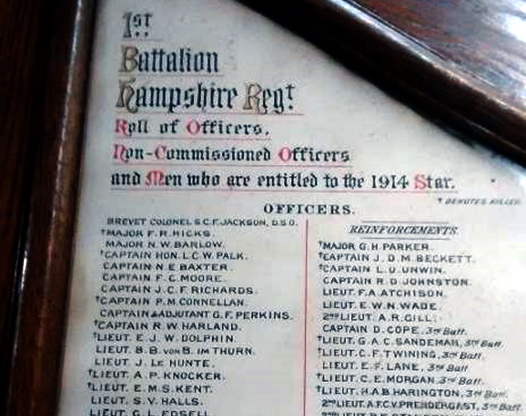 1st
Battalion
Hampshire Regt
Roll of Officers,
Non-Commissioned Officers
and Men who are entitled to the 1914 Star.
† DENOTES KILLED
OFFICERS.
BREVET COLONEL S.C.F. JACKSON, D.S.O.
†MAJOR F.R. HICKS.
MAJOR N.W. BARLOW.
†CAPTAIN HON. L.C.W. PALK.
CAPTAIN N.E. BAXTER.
CAPTAIN F.C. MOORE.
CAPTAIN J.C.F. RICHARDS.
†CAPTAIN P.M. CONNELLAN.
CAPTAIN & ADJUTANT G.F. PERKINS.
†CAPTAIN R.W. HARLAND.
†LIEUT. E.J.W. DOLPHIN.
LIEUT. B.B. VON B. IM THURN.
LIEUT. J. LE HUNTE.
†LIEUT. A.P. KNOCKER.
†LIEUT. E.M.S. KENT.
LIEUT. S.V. HALLS.
LIEUT. G.L. EDSELL
REINFORCEMENTS.
†MAJOR G.H. PARKER.
†CAPTAIN J.D.M. BECKETT.
†CAPTAIN L.U. UNWIN.
CAPTAIN R.D. JOHNSTON.
LIEUT. F.A. ATCHISON.
LIEUT. E.W.N. WADE.
2ND LIEUT. A.R. GILL.
CAPTAIN D. COPE, 3rd Batt.
†LIEUT. G.A.C. SANDEMAN, 3rd Batt.
†LIEUT. C.F. TWINING, 3rd Batt.
LIEUT. E.F. LANE, 3rd Batt
LIEUT. C.E. MORGAN, 3rd Batt.
†LIEUT. H.A.B. HARINGTON, 3rd Batt.
2ND LIEUT. A.F.C.V. PRENDERGAST, 3rd Batt